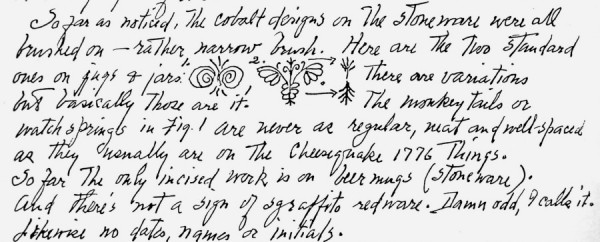 So far as noticed, the cobalt designs on the stoneware were all
brushed on — rather narrow brush. Here are the two standard
ones on jugs & jars: 1. 2. There are variations
but basically those are it. The monkey tails or
watchsprings in Fig. 1 are never as regular, neat and well-spaced
as they usually are on the Cheesequake 1776 Things.
So far the only incised work is on beer mugs (stoneware).
And there's not a sign of sgraffito redware. Damn odd, I calls it.
Likewise no dates, names or initials.